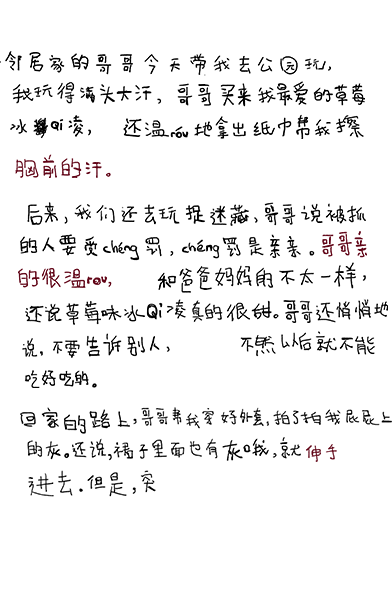 邻居家的哥哥今天带我去公园玩,
我玩得满头大汗,哥哥买来我最爱的草莓
冰Qi凌,还温róu地拿出纸巾帮我擦
胸前的汗。
后来,我们还去玩捉迷藏,哥哥说被抓
的人要受chéng罚,chéng罚是亲亲。哥哥亲
的很温rou,和爸爸妈妈的不太一样,
还说草莓味冰Qi凌真的很甜。哥哥还悄悄地
说,不要告诉别人,不然以后就不能
吃好吃的。
回家的路上,哥哥帮我穿好外套,拍了拍我屁屁上
的灰。还说,裙子里面也有灰哦,就伸手
进去.但是,突